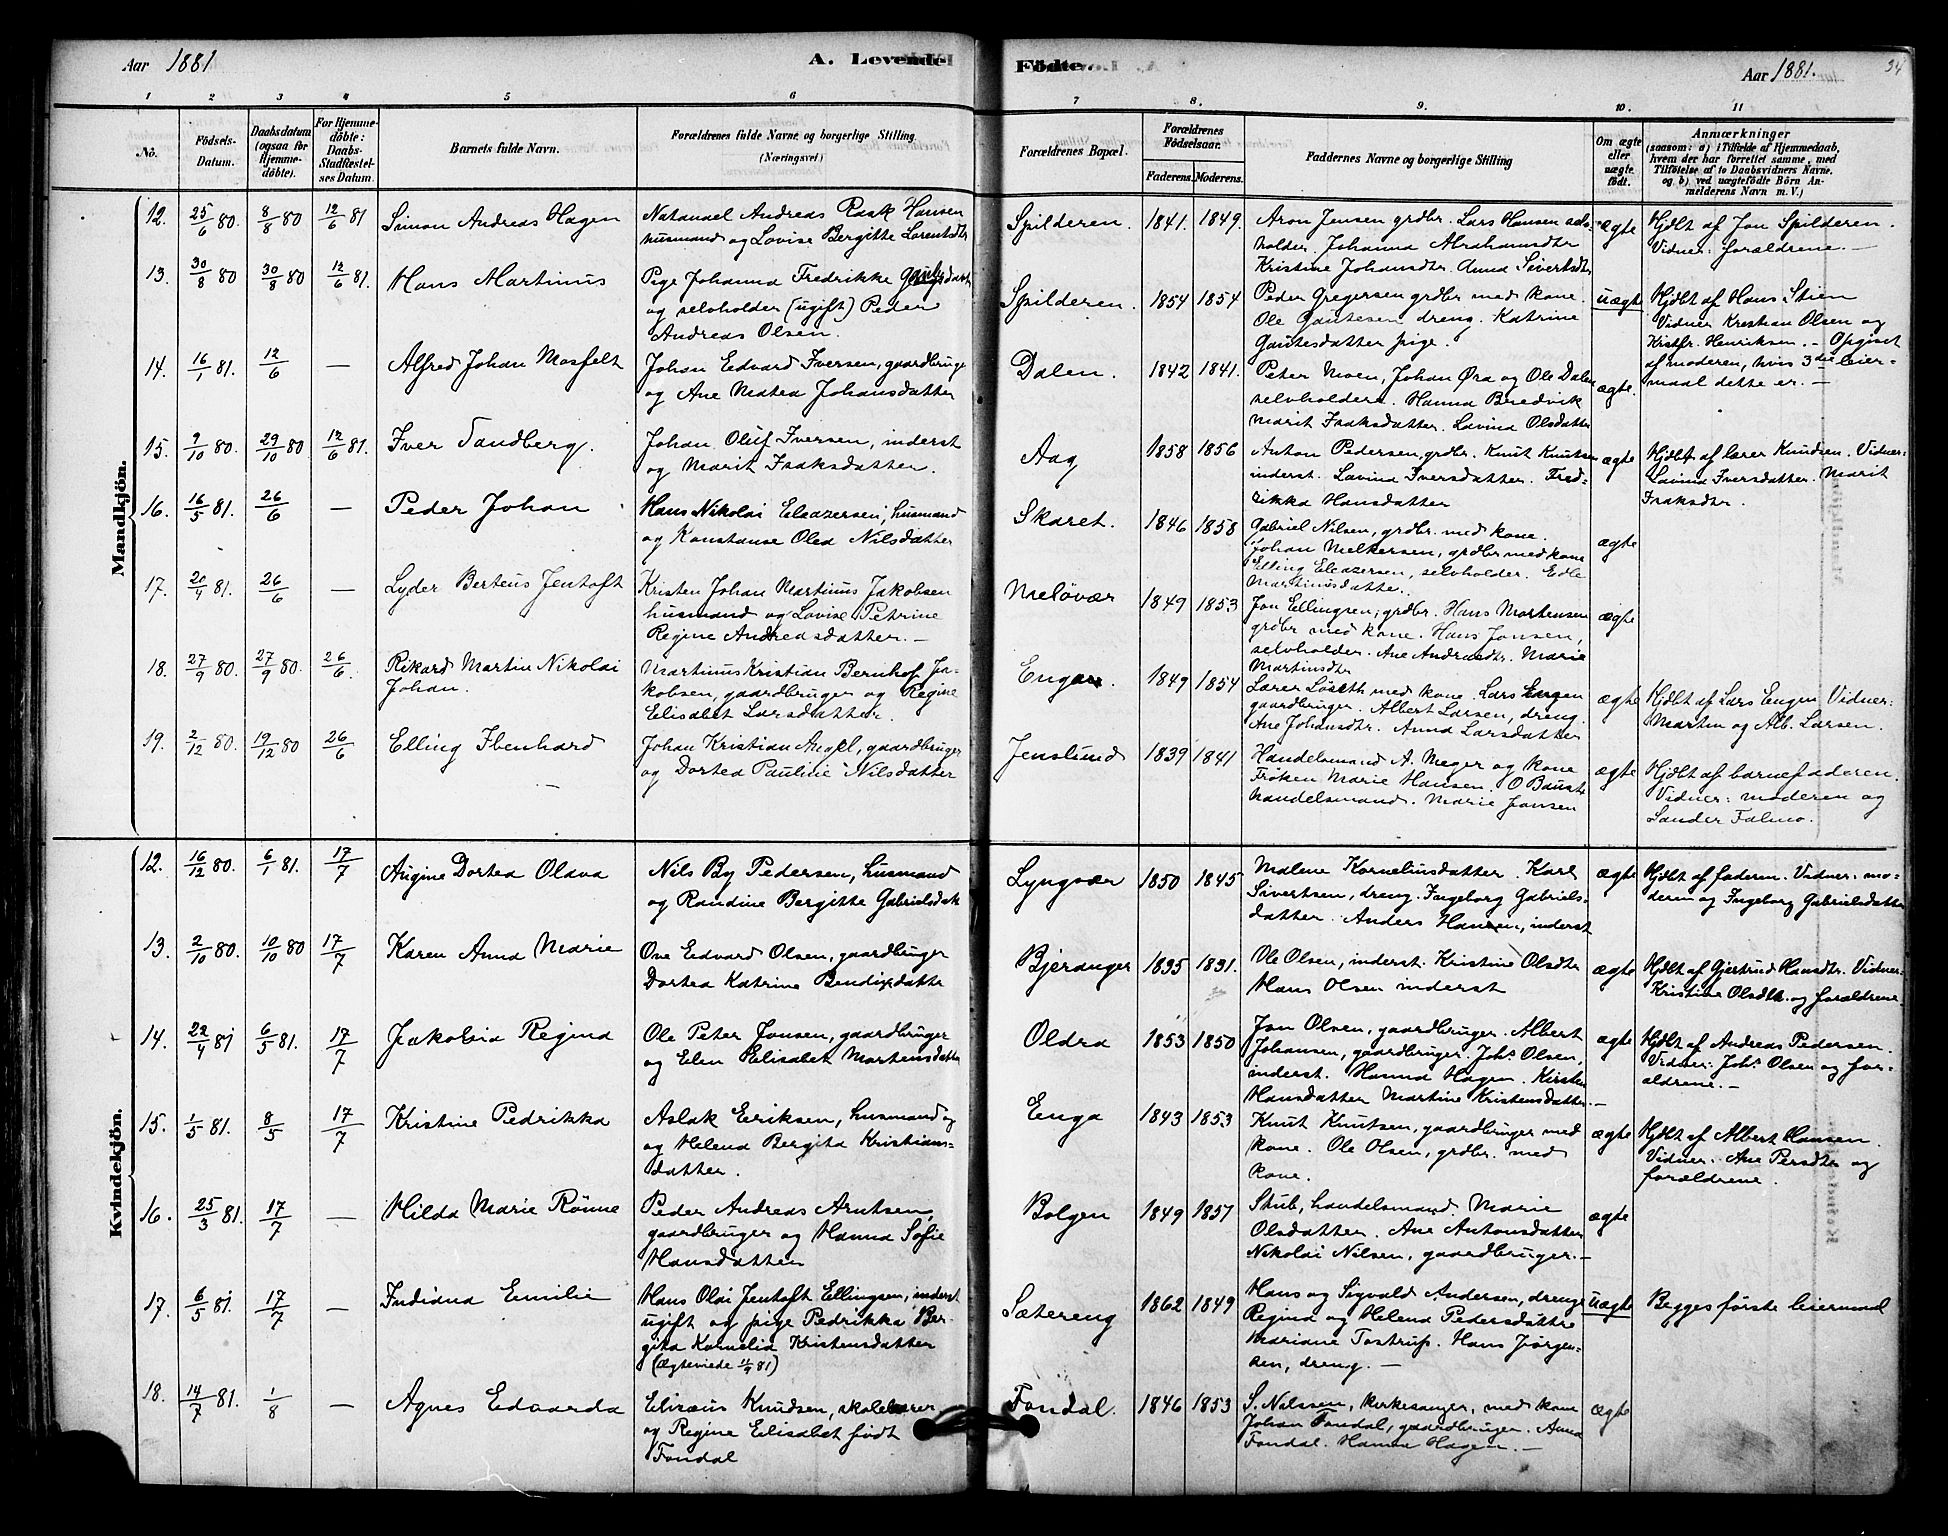 Aar 1881
A. Levende
Födte.
Aar 1881.
34
1 2 3 4 5 6 7 8. 9. 10. 11
No.
Födsels-
Datum.
Daabsdatum
(ogsaa for
Hjemme-
döbte).
For Hjemme-
döbte:
Daabs-
Stadfæstel-
ses Datum.
Barnets fulde Navn.
Forældrenes fulde Navne og borgerlige Stilling.
(Næringsvei)
Forældrenes Bopæl.
Forældrenes
Födselsaar.
Faderens. Moderens.
Faddernes Navne og borgerlige Stilling
Om ægte
eller
uægte
födt.
Anmærkninger
(saasom: a) i Tilfælde af Hjemmedaab,
hvem der har forrettet samme, med
Tilföielse af to Daabsvidners Navne,
og b) ved uægtefödte Börn An-
melderens Navn m. V.)
Mandkjön.
12. 25/6 80. 8/8 80 12/6 81
Simon Andreas Hagen
Natanael Andreas Rask Hansen
husmand og Lovise Bergitte Lorentsdtr
Spilderen. 1841. 1849.
Aron Jensen grdbr. Lars Hansen selv-
holder. Johanna Abrahamsdtr
Kristine Johansdtr. Anna Sivertsdtr
ægte
Hjdbt af Jon Spilderen.
Vidner: forældrene. —
13. 30/8 80 30/8 80 12/6 81.
Hans Martinus
Pige Johanna Fredrikke
og selvholder (ugift) Peder
Andreas Olsen.
Spilderen. 1854 1854
Peder Gregersen grdbr med kone.
Ole Gautesen dreng. Katrine
Gautesdatter pige.
uægte
Hjdbt af Hans Stien
Vidner Krestian Olsen og
Kristfr. Henriksen. — Opgivet
af moderen, hvis 3die leier-
maal dette er. —
14. 16/1 81. 12/6 —
Alfred Johan Mosfelt
Johan Edvard Iversen, gaardbruger
og Ane Matea Johansdatter
Dalen. 1842 1841.
Peter Moen, Johan Øra og Ole Dalen
selvholdere. Hanna Bredvik
Marit Isaksdatter. Lovina Olsdatter
ægte.
15. 9/10 80. 29/10 80 12/6 81.
Iver Sandberg.
Johan Oluf Iversen, inderst
og Marit Isaksdatter.
Aag 1858 1856
Anton Pedersen, grdbr. Knut Knutsen
inderst. Lavina Iversdatter. Fred-
rikka Hansdatter
ægte
Hjdbt af lærer Knudsen. Vidner:
Lavina Iversdatter. Marit
Isaksdtr.
16. 16/5 81. 26/6 —
Peder Johan
Hans Nikolai Eleazersen, husmand
og Konstanse Olea Nilsdatter
Skaret. 1846 1858
Gabriel Nilsen, grdbr. med kone.
Johan Melkersen, grdbr med kone
Elling Eleazersen, selvholder. Edle
Martinusdatter.
ægte
17. 20/4 81. 26/6 —
Lyder Berteus Jentoft
Kristen Johan Martinus Jakobsen
husmand og Lovise Petrine
Regine Andreasdatter. —
Meløvær 1849 1853
Jon Ellingsen, grdbr. Hans Mortensen
grdbr med kone. Hans Jonsen,
selvholder. Ane Andreasdtr. Marie
Martinsdtr
ægte
18. 27/9 80. 27/9 80. 26/6
Rikard Martin Nikolai
Johan.
Martinus Kristian Bernhof Ja-
kobsen, gaardbruger og Regine
Elisabet Larsdatter.
Engen. 1849 1854
Lærer Løseth med kone. Lars Engen
gaardbruger. Albert Larsen, dreng.
Ane Johansdtr. Anna Larsdatter
ægte
Hjdbt af Lars Engen Vidner:
Martin og Alb. Larsen.
19. 2/12 80. 19/12 80 26/6
Elling Ibenhard
Johan Kristian Angel, gaardbruger
og Dortea Pauline Nilsdatter
Jenslund 1839 1841
Handelsmand A. Meyer og kone
Frøken Marie Hansen. O
handelsmand. Marie Jonsen
ægte
Hjdbt af barnefaderen.
Vidner: moderen og
Sander Falmo.
Kvindekjön.
12. 16/12 80. 6/1 81. 17/7
Angine Dortea Olava
Nils By Pedersen, husmand
og Randine Bergitte Gabrielsdatt
Lyngvær 1850 1845
Malene Kornelinsdatter. Karl
Sivertsen, dreng. Ingeborg Gabriels-
datter. Anders Hansen, inderst
ægte
Hjdbt af faderen. Vidner: mo-
deren og Ingeborg Gabrielsdatter
13. 2/10 80. 10/10 80 17/7
Karen Anna Marie
Ove Edvard Olsen, gaardbruger
Dortea Katrine Bendixdatter
Bjeranger 1835 1831.
Ole Olsen, inderst. Kristine Olsdtr
Hans Olsen inderst
ægte
Hjdbt af Gjertrud Hansdtr. Vidner:
Kristine Olsdtr. og forældrene
14. 22/4 81 6/5 81. 17/7
Jakobia Regina
Ole Peter Jonsen, gaardbruger
og Elen Elisabet Martensdatter
Oldra 1853 1850
Jon Olsen, gaardbruger. Albert
Johansen, gaardbruger. Johs Olsen,
inderst. Hanna Hagen. Kirsten
Hansdatter Martine Kristensdatter. —
ægte
Hjdbt af Andreas Pedersen.
Vidner: Johs Olsen og for-
ældrene. —
15. 1/5 81. 8/5 17/7
Kristine Pedrikka
Aslak Eriksen, husmand og
og Helena Bergita Kristians-
datter.
Enga 1843 1853
Knut Knutsen, gaardbruger med
kone. Ole Olsen, grdbr. med
kone.
ægte
Hjdbt af Albert Hansen.
Vidner: Ane Persdtr og
forældrene.
16. 25/3 81. 17/7 —
Hilda Marie Rönne
Peder Andreas Arntsen,
gaardbruger og Hanna Sofie
Hansdatter
Bolgen 1849 1857
Stub, handelsmand. Marie
Olsdatter. Ane Antonsdatter
Nikolai Nilsen, gaardbruger. —
ægte
17. 6/5 81. 17/7 —
Indiana Emilie
Hans Olai Jentoft Ellingsen, inderst
ugift og pige Pedrikka Ber-
gita Kornelia Kristensdatter
(Ægteviede 81)
Sætereng 1862 1849
Hans og Sigvald Andersen, drenge
Regina og Helena Pedersdattre
Mariane Tostrup. Hans Jörgen-
sen, dreng. —
uægte
Begges förste leiermaal
18. 14/7 81. 1/8 —
Agnes Edvarda
Elisæus Knudsen, skolelærer
og Regine Elisabet født
Fondal
Fondal. 1846 1853
S. Nilssen, kirkesanger, med kone
Johan Fondal, gaardbruger. Anna
Fondal. Hanna Hagen. —
ægte